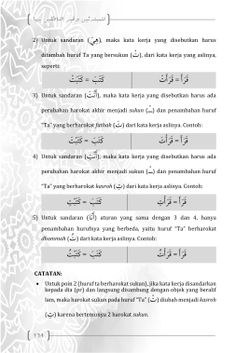 2) Untuk sandaran (هِيَ), maka kata kerja yang disebutkan harus
ditambah huruf Ta yang bersukun (تْ), dari kata kerja yang aslinya,
seperti:
قَرَأَ = قَرَأَتْ
كَتَبَ = كَتَبَتْ
3) Untuk sandaran (أَنْتَ), maka kata kerja yang disebutkan harus ada
perubahan harokat akhir menjadi sukun (ـْ) dan penambahan huruf
"Ta" yang berharokat fathah (تَ) dari kata kerja aslinya. Contoh:
قَرَأَ = قَرَأْتَ
كَتَبَ = كَتَبْتَ
4) Untuk sandaran (أَنْتِ), maka kata kerja yang disebutkan harus ada
perubahan harokat akhir menjadi sukun (ـْ) dan penambahan huruf
"Ta" yang berharokat kasroh (تِ) dari kata kerja aslinya. Contoh:
قَرَأَ = قَرَأْتِ
كَتَبَ = كَتَبْتِ
5) Untuk sandaran (أَنَا) aturan yang sama dengan 3 dan 4, hanya
penambahan hurufnya yang berbeda, yaitu huruf "Ta" berharokat
dhommah (تُ) dari kata kerja aslinya. Contoh:
قَرَأَ = قَرَأْتُ
كَتَبَ = كَتَبْتُ
CATATAN:
• Untuk poin 2 (huruf ta berharokat sukun), jika kata kerja disandarkan
kepada dia (pr) dan langsung disambung dengan objek yang beralif
lam, maka harokat sukun pada huruf "Ta" (تْ) diubah menjadi kasroh
(تِ) karena bertemunya 2 harokat sukun.